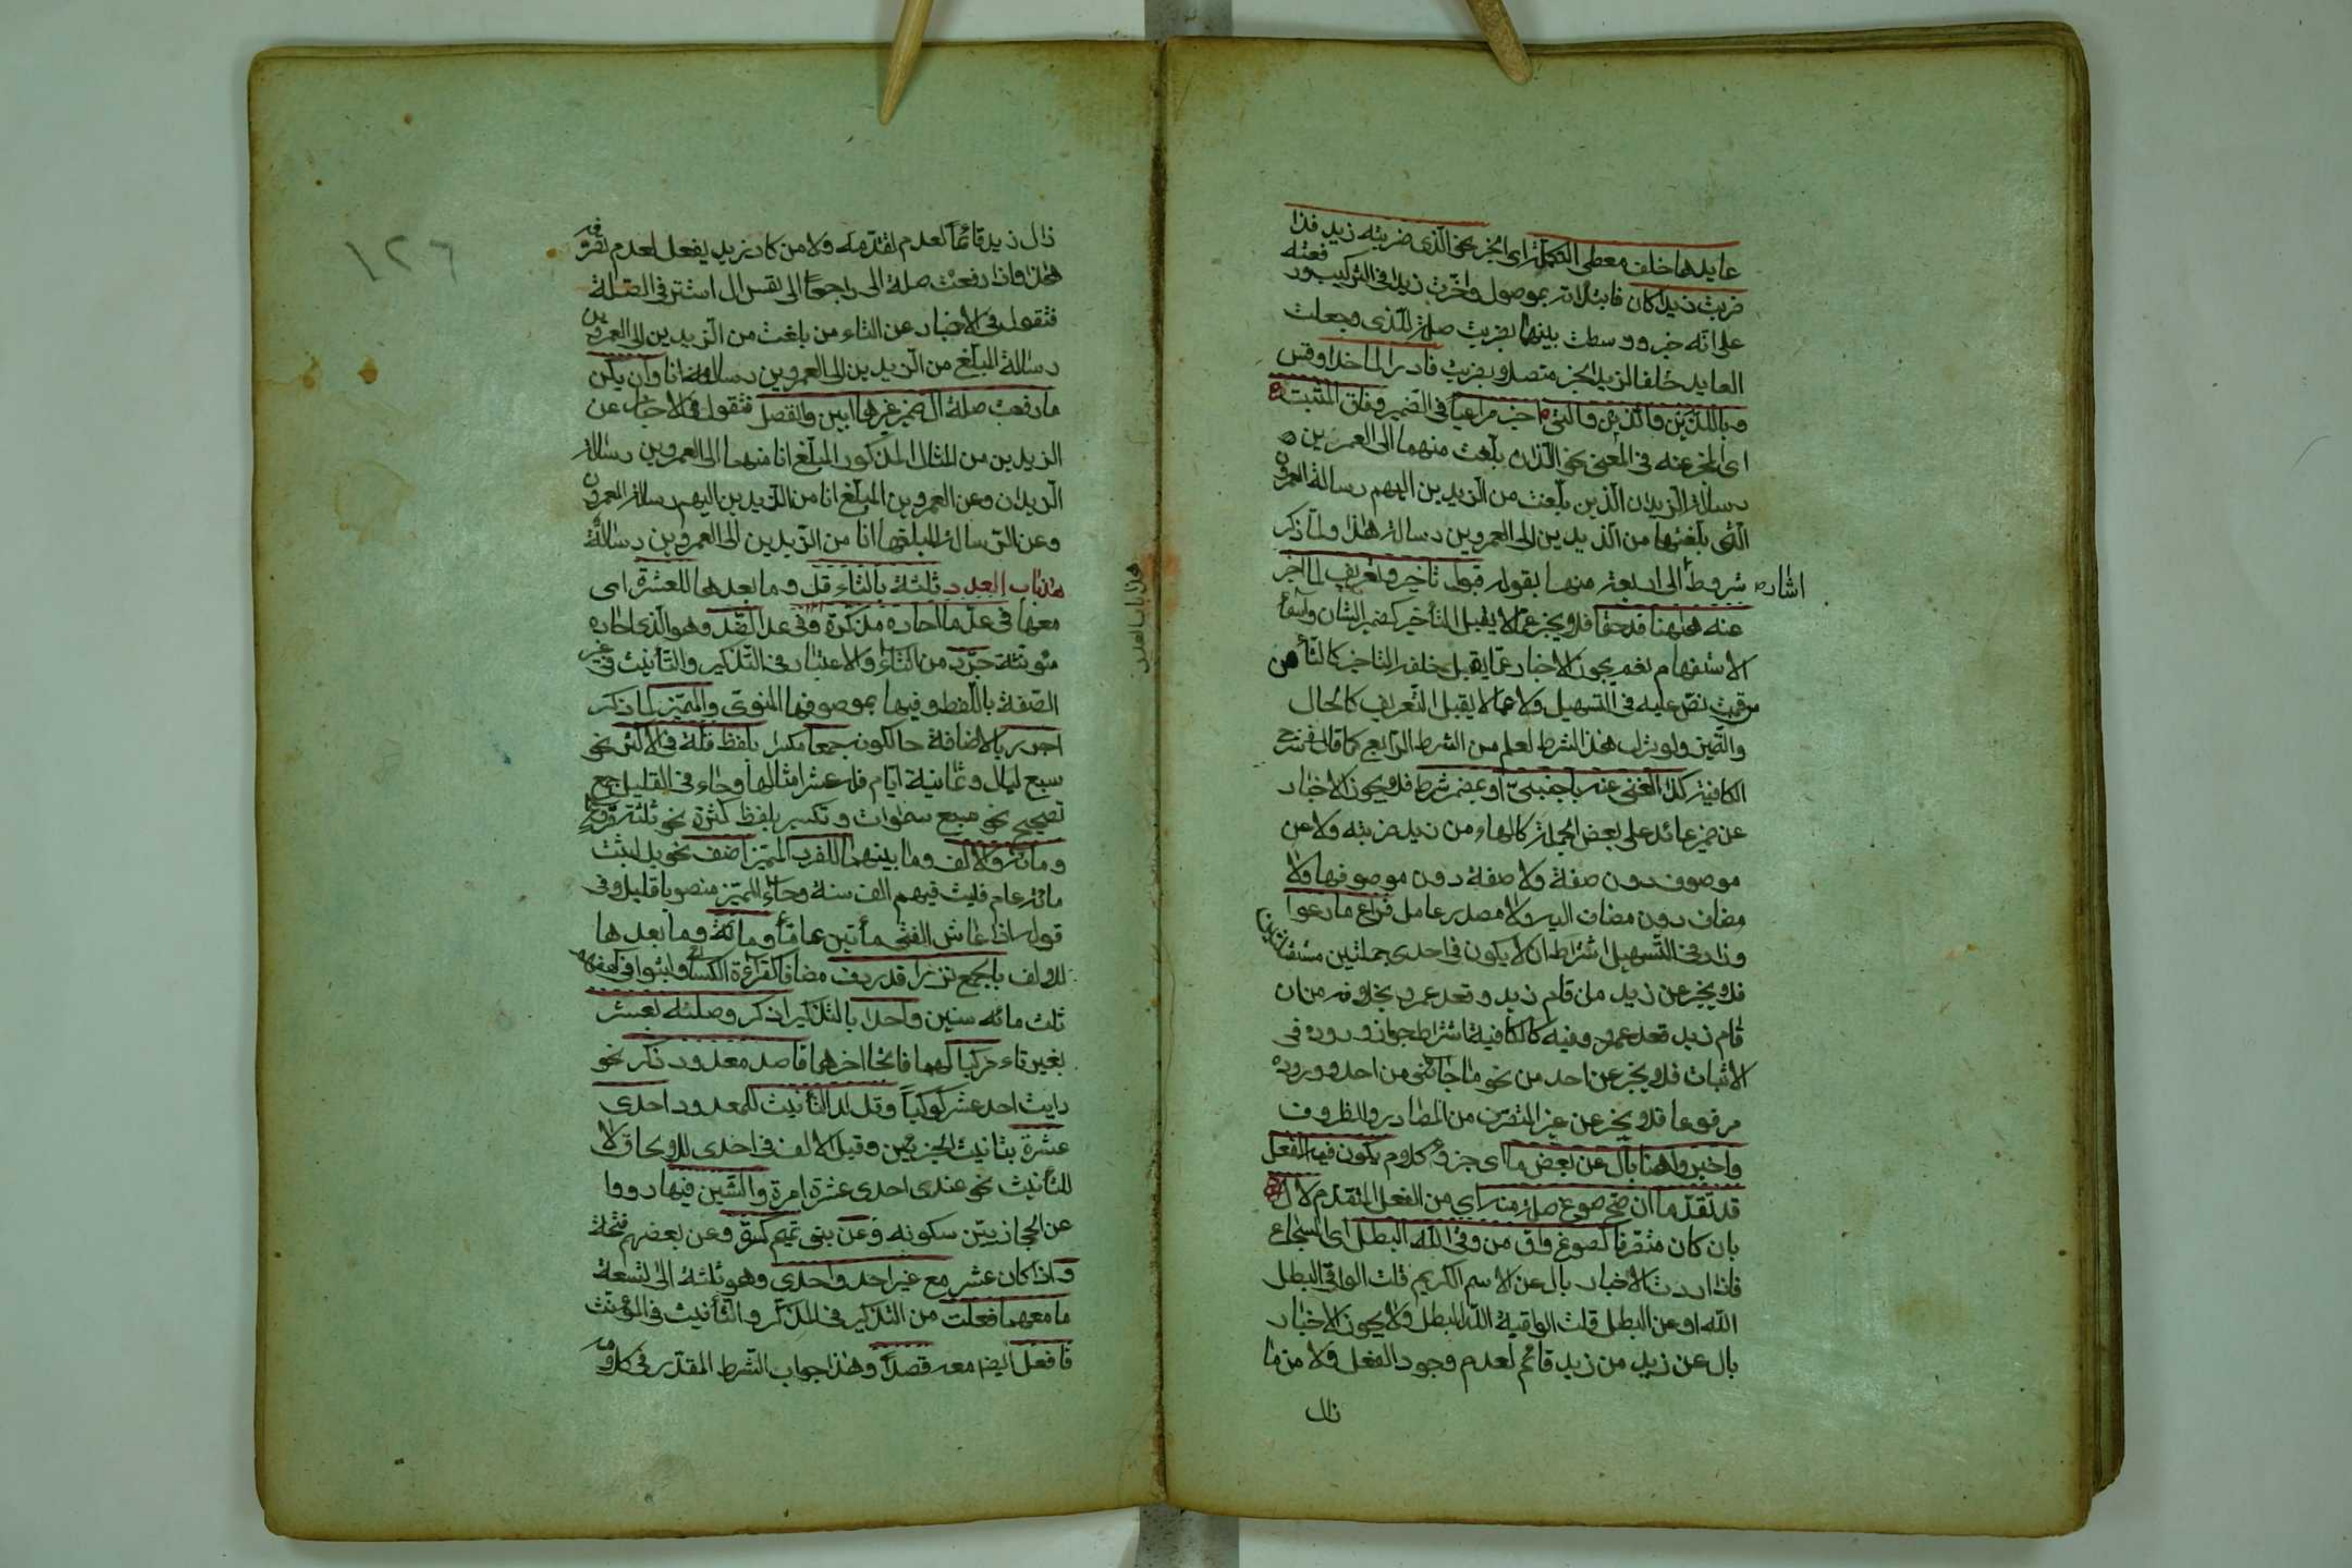 عايدها خلف معطى التكملة اى الخبر نحو الذى ضربته زيد فذا
ضربت زيدا كان فابتدات بموصول واخرت زيدا فى التركيب ورفعته
على انه خبر ووسطت بينهما بضربت صلة للذى وجعلت
العايد خلفا لزيد الخبر متصلا بضربت فادر الماخذا وقس
وباللذين والذين والتى اخبر مراعيا فى الضمير وفاق المثبت
اى المخبر عنه فى المعنى نحو اللذان بلغت منهما الى العمرين
رسالة الزيدان الذين بلغت من الزيدين اليهم رسالة العمرون
التى بلغتها من الزيدين الى العمروين رسالة هذا ولما ذكر
شروط اشار الى اربعة منها بقوله قبول تاخير وتعريف لما اخبر
عنه ههنا قد حتما فلا يخبر عما لا يقبل التأخير كضمير الشان واسماء
الاستفهام نعم يجوز الاخبار عما يقبل خلفه التاخير كالتاء من
قمت نص عليه فى التسهيل ولا عما لا يقبل التعريف كالحال
والتميز ولو ترك هذا الشرط لعلم من الشرط الرابع كما قال فى شرح
الكافية كذا الغنى عنه باجنبى او بمضمر شرط فلا يجوز الاخبار
عن ضمير عائد على بعض الجملة كالهاء من زيد ضربته ولا عن
موصوف دون صفة ولا صفة دون موصوفها ولا
مضاف دون مضاف اليه ولا مصدر عامل فراع ما رعوا
وزاد فى التسهيل اشتراط ان لا يكون فى احدى جملتين مستقلتين
فلا يخبر عن زيد من قام زيد وقعد عمرو بخلافه من ان
قام زيد قعد عمرو وفيه كالكافية اشتراط جواز وروده فى
الاثبات فلا يخبر عن احد من نحو ما جائنى من احد ووروده
مرفوعا فلا يخبر عن غير المتصرف من المصادر والظروف
واخبروا هنا بال عن بعض ما اى جزء كلام يكون فيه الفعل
قد تقدما ان صح صوغ صلة منه اى من الفعل المتقدم لال
بان كان متصرفا كصوغ واق من وقى الله البطل اى الشجاع
فاذا اردت الاخبار بال عن الاسم الكريم قلت الواقى البطل
الله او عن البطل قلت الواقيه الله البطل ولا يجوز الاخبار
بال عن زيد من زيد قائم لعدم وجود الفعل ولا من ما
زال
١٢٦
زال زيد قائما لعدم تقدمه ولا من كاد زيد يفعل لعدم تصرفه
هذا واذا رفعت صلة ال راجعا الى نفس ال استتر فى الصلة
فتقول فى الاخبار عن التاء من بلغت من الزيدين الى العمروين
رسالة المبلغ من الزيدين الى العمروين رسالة انا وان يكن
ما رفعت صلة ال ضمير غيرها ابين وانفصل فتقول فى الاخبار عن
الزيدين من المثال المذكور المبلغ انا منهما الى العمروين رسالة
الزيدان وعن العمروين المبلغ انا من الزيدين اليهم رسالة العمرون
وعن الرسالة المبلغها انا من الزيدين الى العمروين رسالة
هذا باب العدد ثلثة بالتاء قل وما بعدها للعشرة اى
معها فى عد ما احاده مذكرة وفى عد الضد وهو الذى احاده
مؤنثة جرد من التاء والاعتبار فى التذكير والتأنيث فى غير
الصفة باللفظ وفيها بموصوفها المنوى والمميز لما ذكر
اجرر بالاضافة حالكونه جمعا مكسرا بلفظ قلة فى الاكثر نحو
سبع ليال وثمانية ايام فله عشر امثالها وجاء فى القليل جمع
تصحيح نحو سبع سموات وتكسير بلفظ كثرة نحو ثلثة قروء
ومائة والالف وما بينهما للفرد المميز اضف نحو بل لبثت
مائة عام فلبث فيهم الف سنة وجاء المميز منصوبا قليلا وفى
قوله اذا عاش الفتى مأتين عاما ومائة وما بعدها
للالف بالجمع نزرا قد ردف مضافا كقراءة الكسائى ولبثوا فى كهفهم
ثلث مائه سنين واحدا بالتذكير اذكر وصلنه بعشر
بغير تاء مركبا لهما فاتحا اخرهما قاصد معدود ذكر نحو
رايت احد عشر كوكبا وقل لدا التأنيث للمعدود احدى
عشرة بتانيث الجزءين وقيل الالف فى احدى للالحاق لا
للتأنيث نحو عندى احدى عشرة امرة والشين فيها رووا
عن الحجازيين سكونه وعن بنى تميم كسره وعن بعضهم فتحه
واذا كان عشر مع غير احد واحدى وهو ثلثة الى تسعة
ما معهما فعلت من التذكير فى المذكر والتأنيث فى المؤنث
فافعل ايضا معه قصدا وهذا جواب الشرط المقدر فى كلامه
هذا باب العدد